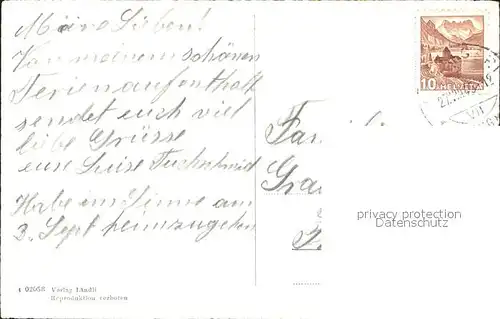 Meine Lieben!
Von meinem schönen
Ferienaufenthalt
sendet euch viel
liebe Grüsse
eure Luise
Habe im Sinne am
3. Sept heimzugehen
Fam
Gra
10 HELVETIA
VII
privacy protection
Datenschutz
Verlag Ländli
Reproduktion verboten